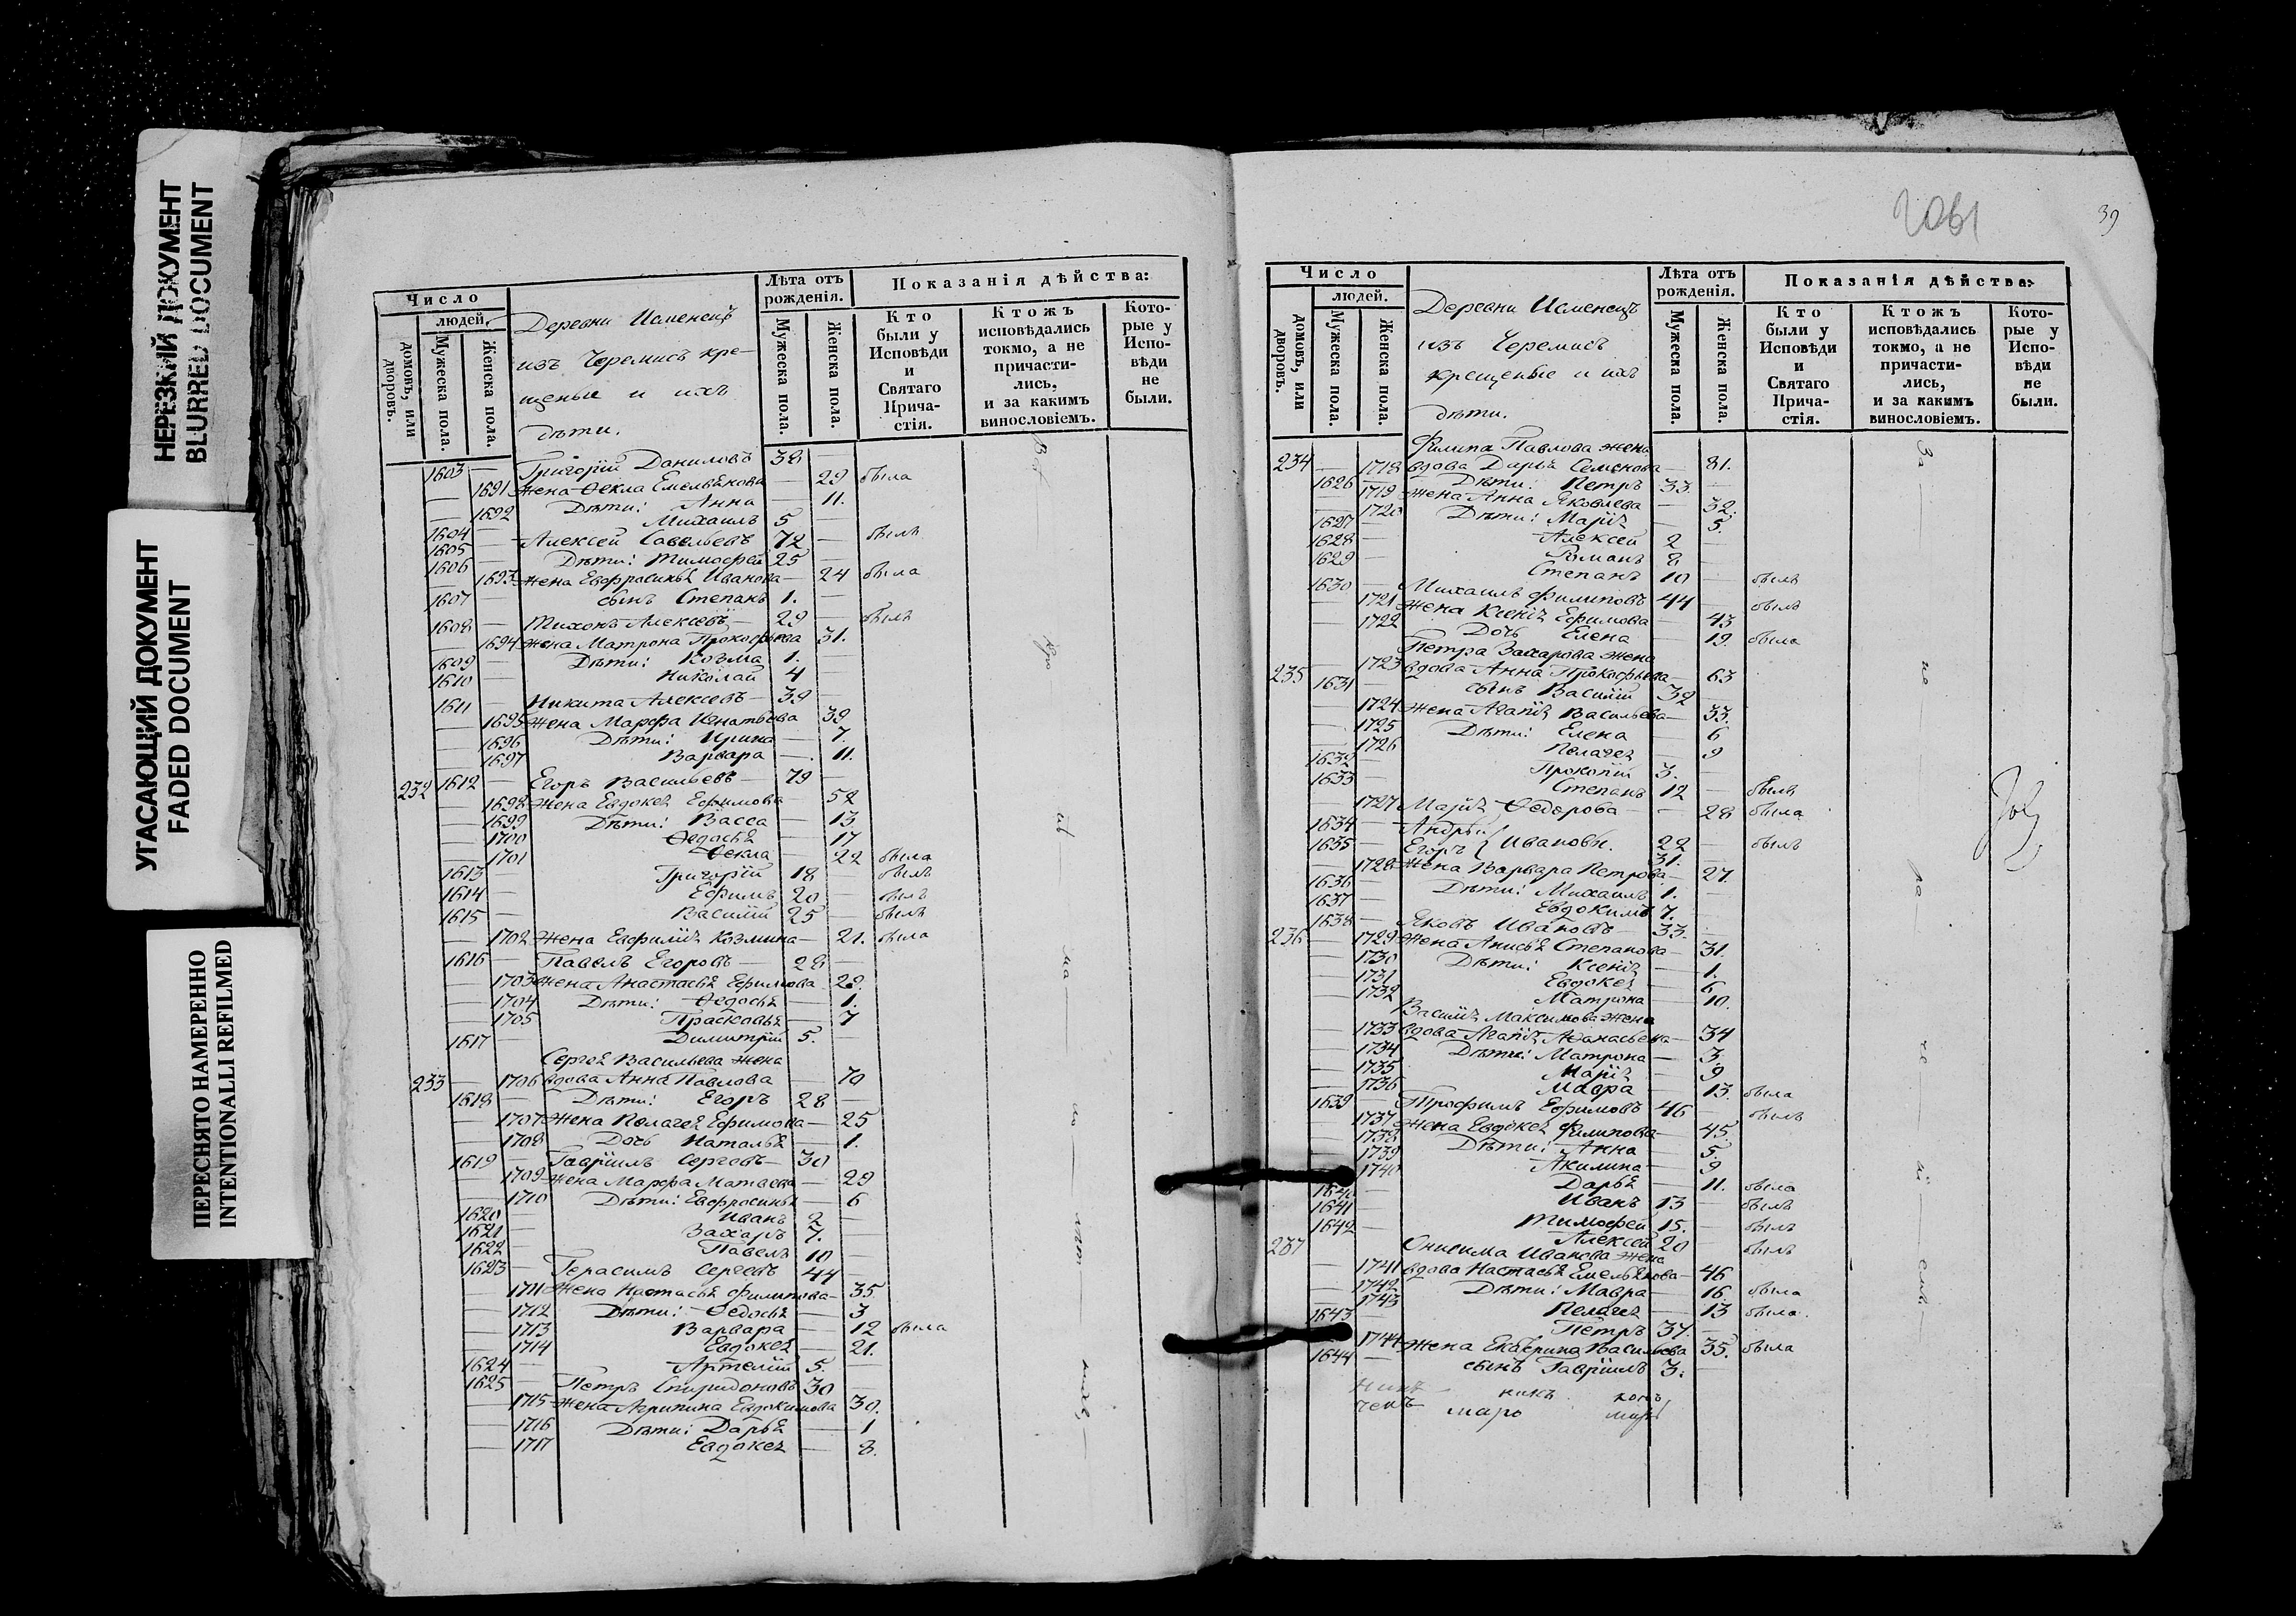 НЕРЕЗКИЙ ДОКУМЕНТ
BLURRED DOCUMENT
УГАСАЮЩИЙ ДОКУМЕНТ
FADED DOCUMENT
ПЕРЕСНЯТО НАМЕРЕННО
INTENTIONALLI REFILMED
Число
людей.
домовъ, или дворовъ.
Мужеска пола.
Женска пола.
Деревни Исменецъ
изъ Черемисъ кре-
щеные и ихъ
дѣти.
Лѣта отъ рожденія.
Мужеска пола.
Женска пола.
Показанія дѣйства:
Кто были у Исповѣди и Святаго Прича-стія.
Ктожъ исповѣдались токмо, а не причасти-лись, и за какимъ винословіемъ.
Кото-рые у Испо-вѣди не были.
1603 — Григорій Даниловъ 38
— 1691 Жена Ѳекла Емельянова — 29 была
— 1692 Дѣти: Анна — 11.
1604 — Михаилъ 5 —
1605 — Алексей Савельевъ 72 — былъ
1606 — Дѣти: Тимофей 25
— 1693 Жена Евфросинья Иванова — 24 была
1607 — сынъ Степанъ 1. —
1608 — Тихонъ Алексеевъ 29 — былъ
— 1694 Жена Матрона Прокофьева 31.
1609 — Дѣти: Козьма 1. —
1610 — Николай 4 —
1611 — Никита Алексеевъ — 39 —
— 1695 Жена Марфа Игнатьева 39
— 1696 Дѣти: Ирина — 7.
— 1697 Варвара — 11.
232 1612 — Егоръ Васильевъ — 79 —
— 1698 Жена Евдокея Ефимова — 52
— 1699 Дѣти: Васса — 13
— 1700 Ѳедосья — 17
— 1701 Ѳекла — 22 была
1613 — Григорій 18 — былъ
1614 — Ефимъ 20 — былъ
1615 — Василій 25 — былъ
— 1702 Жена Евфимія Козмина — 21. была
1616 — Павелъ Егоровъ — 28 —
— 1703 Жена Анастасья Ефимова 28.
— 1704 Дѣти: Ѳедосья — 1.
— 1705 Прасковья — 7
1617 — Димитрій 5. —
Сергея Васильева жена
233 — 1706 вдова Анна Павлова — 70
1618 — Дѣти: Егоръ 28 —
— 1707 Жена Пелагея Ефимова — 25
— 1708 Дочь Наталья — 1.
1619 — Гавріилъ Сергеевъ — 30
— 1709 Жена Марфа Матвеева — 29
— 1710 Дѣти: Евфросинья — 6
1620 — Иванъ 2 —
1621 — Захаръ 7. —
1622 — Павелъ 10 —
1623 — Герасимъ Сергеевъ 44 —
— 1711 Жена Настасья Филипова — 35
— 1712 Дѣти: Ѳедосья — 3
— 1713 Варвара — 12 была
— 1714 Евдокея — 21.
1624 — Артемій 5. —
1625 — Петръ Спиридоновъ 30 —
— 1715 Жена Агрипина Евдокимова 30.
— 1716 Дѣти: Дарья — 1
— 1717 Евдокея — 8.
39
Число
людей.
домовъ, или дворовъ.
Мужеска пола.
Женска пола.
Деревни Исменецъ
изъ Черемисъ
крещеные и ихъ
дѣти.
Лѣта отъ рожденія.
Мужеска пола.
Женска пола.
Показанія дѣйства:
Кто были у Исповѣди и Святаго Прича-стія.
Ктожъ исповѣдались токмо, а не причасти-лись, и за какимъ винословіемъ.
Кото-рые у Испо-вѣди не были.
Филипа Павлова жена
234 — 1718 вдова Дарья Семенова — 81.
1626 — Дѣти: Петръ 33. —
— 1719 Жена Анна Яковлева — 32.
— 1720 Дѣти: Марія — 5.
1627 — Алексей 2 —
1628 — Романъ 8 —
1629 — Степанъ 10 — былъ
1630 — Михаилъ Филиповъ 44 — былъ
— 1721 Жена Ксенія Ефимова — 43
— 1722 Дочь Елена — 19. была
Петра Захарова жена
235 — 1723 вдова Анна Прокофьева — 63
1631 — сынъ Василій 32
— 1724 Жена Агапія Васильева — 33.
— 1725 Дѣти: Елена — 6
— 1726 Пелагея — 9
1632 — Прокопій 3. —
1633 — Степанъ 12 — былъ
— 1727 Марія Ѳедорова — 28 была
1634 — Андрей
1635 — Егоръ } Ивановы. 22 — былъ
31.
— 1728 Жена Варвара Петрова — 27.
1636 — Дѣти: Михаилъ 1. —
1637 — Евдокимъ 7. —
1638 — Яковъ Ивановъ — 33. —
236 — 1729 Жена Анисья Степанова — 31.
— 1730 Дѣти: Ксенія — 1.
— 1731 Евдокея — 6
— 1732 Матрона — 10.
Василія Максимова жена
— 1733 вдова Агапія Афанасьева — 34
— 1734 Дѣти: Матрона — 3.
— 1735 Марія — 9
— 1736 Мавра — 13. была
1639 — Трофимъ Ефимовъ 46 — былъ
— 1737 Жена Евдокея Филипова — 45
— 1738 Дѣти: Анна — 5.
— 1739 Акилина — 9
— 1740 Дарья — 11. была
1640 — Иванъ 13 — былъ
1641 — Тимофей 15. — былъ
1642 — Алексей 20 — былъ
237 Онисима Иванова жена
— 1741 вдова Настасья Емельянова — 46
— 1742 Дѣти: Мавра — 16 была
— 1743 Пелагея — 13 была.
1643 — Петръ 37. —
— 1744 Жена Екатерина Васильева 35. была
1644 — сынъ Гавріилъ 3. —